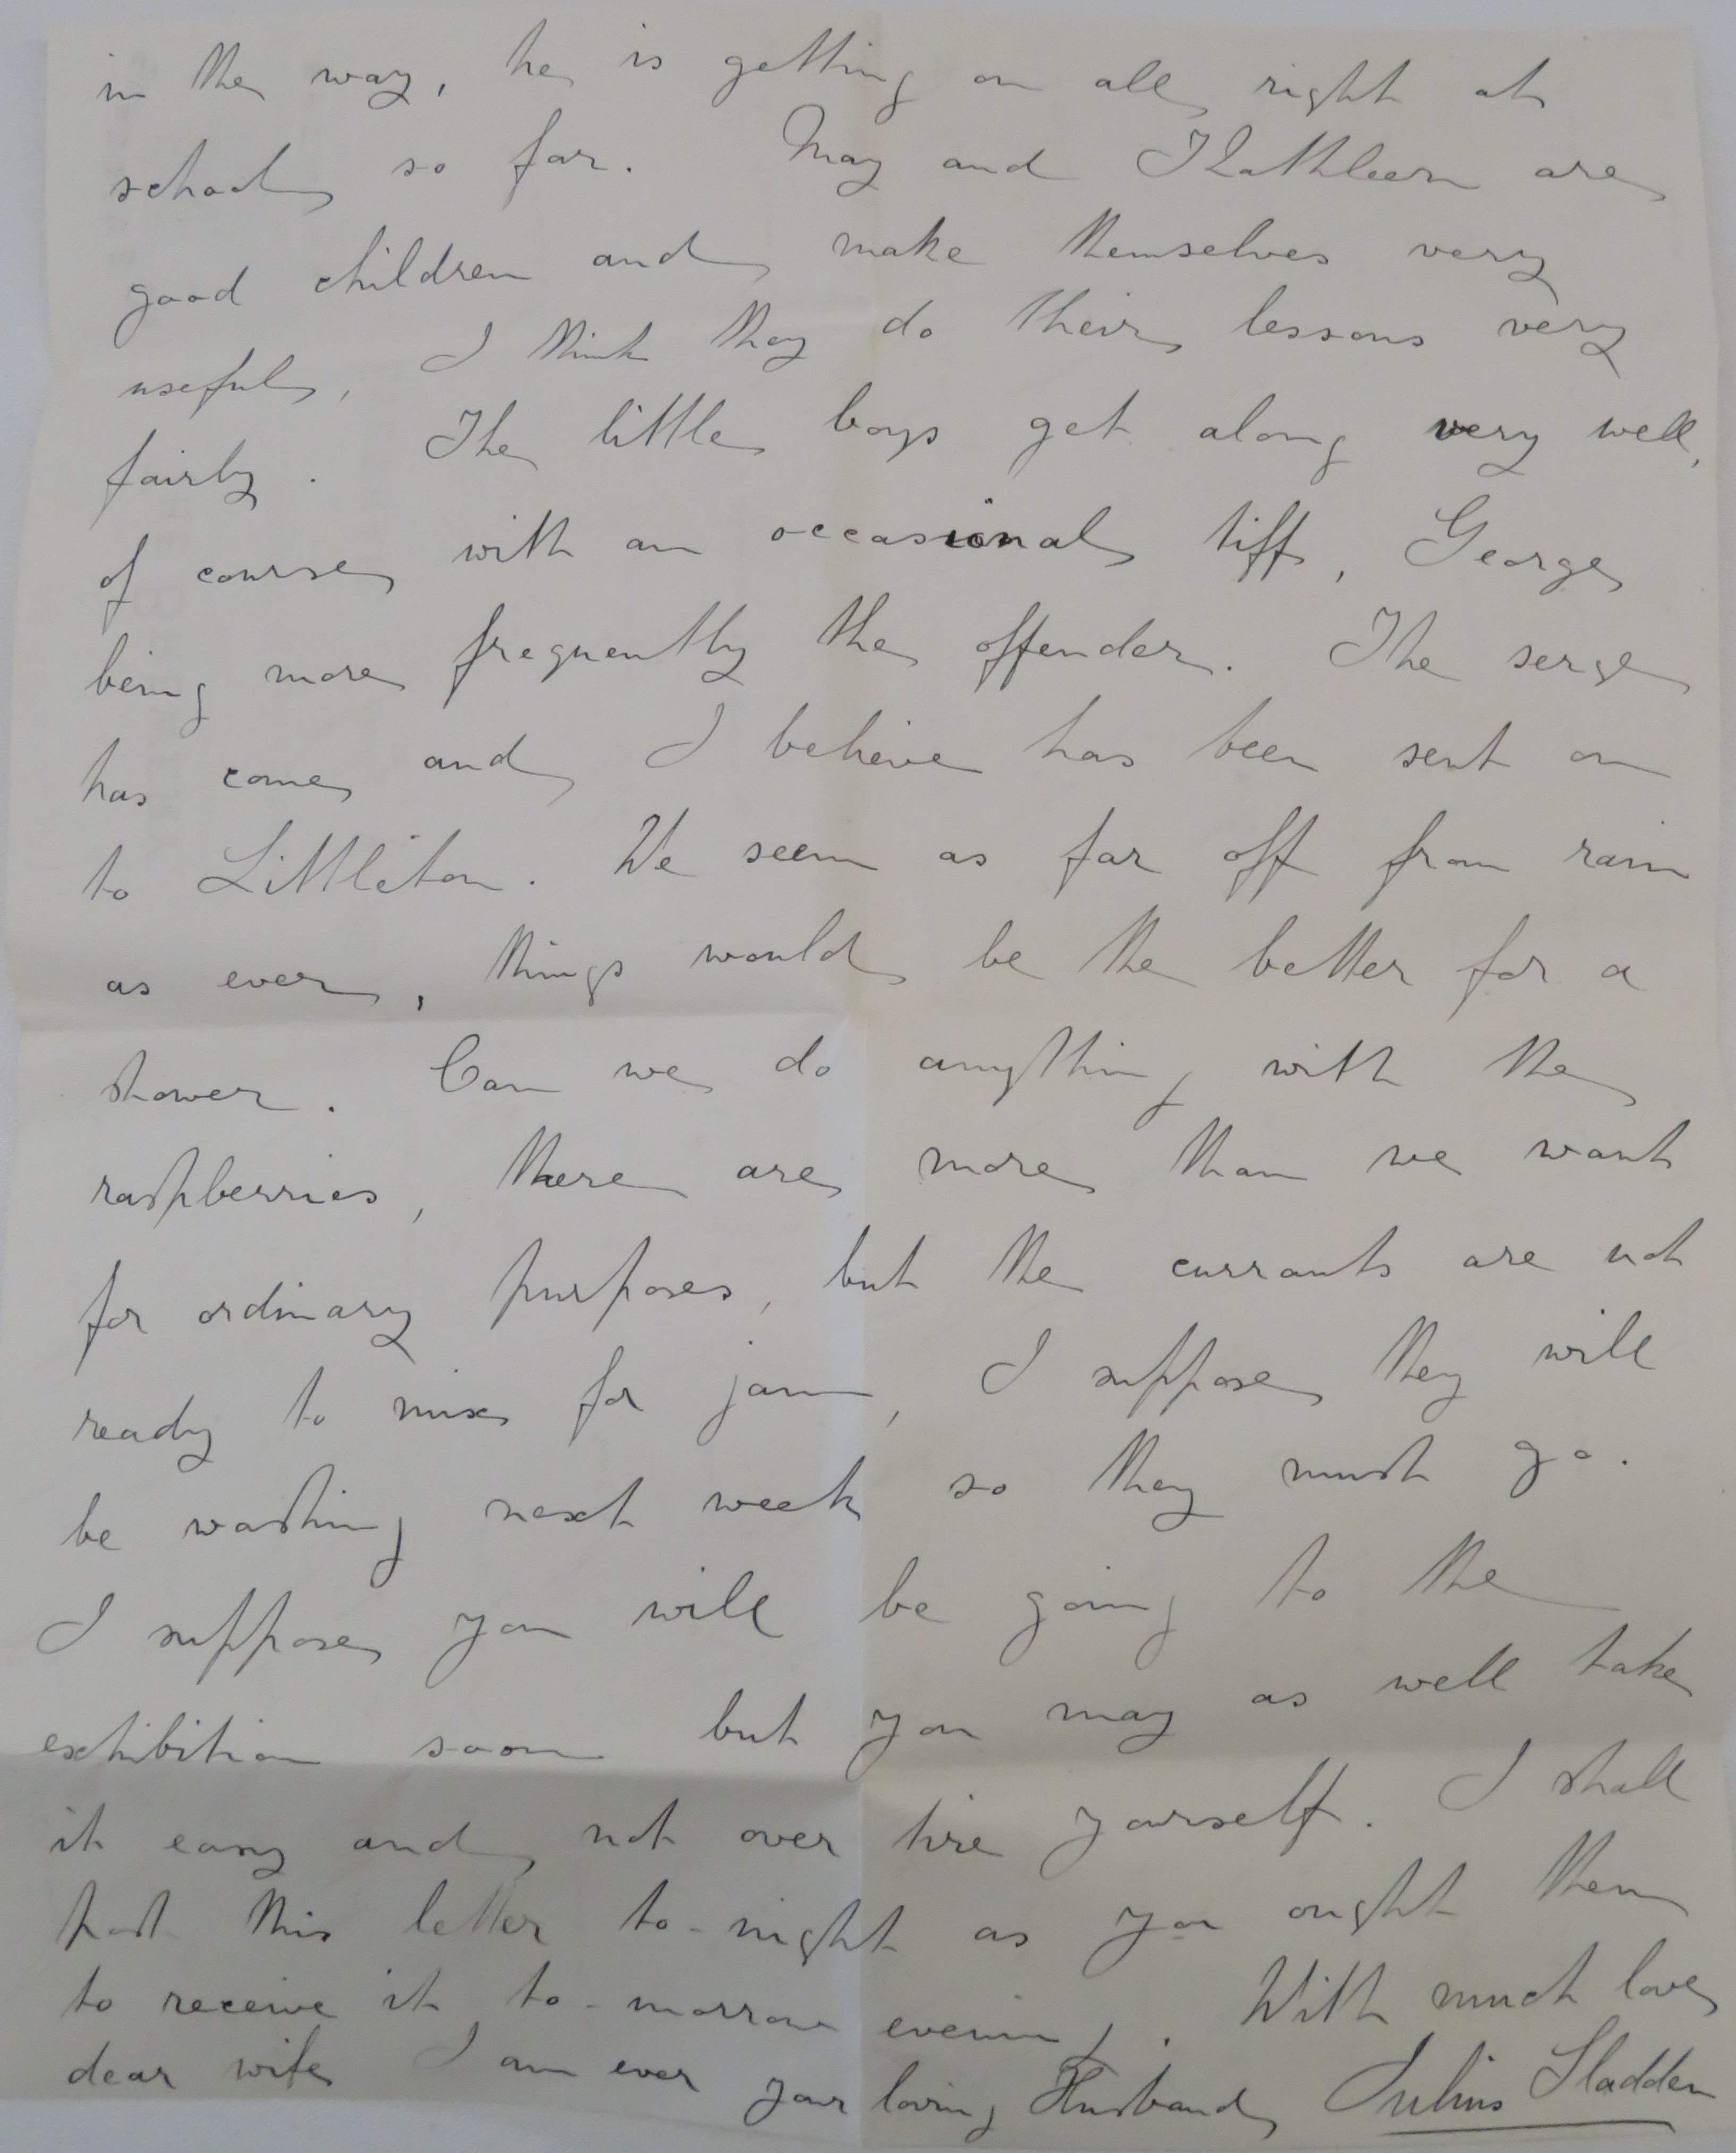 in the way, he is getting on all right at
school so far. May and Kathleen are
good children and make themselves very
useful, I think they do their lessons very
fairly. The little boys get along very well,
of course with an occasional tiff, George
being more frequently the offender. The serge
has come and I believe has been sent on
to Littleton. We seem as far off from rain
as ever, things would be the better for a
shower. Can we do anything with the
raspberries, there are more than we want
for ordinary purposes, but the currants are not
ready to mix for jam, I suppose they will
be washing next week so they must go.
I suppose you will be going to the
exhibition soon but you may as well take
it easy and not over tire yourself. I shall
post this letter to-night as you ought then
to receive it to-morrow evening. With much love
dear wife I am ever your loving Husband, Julius Sladden